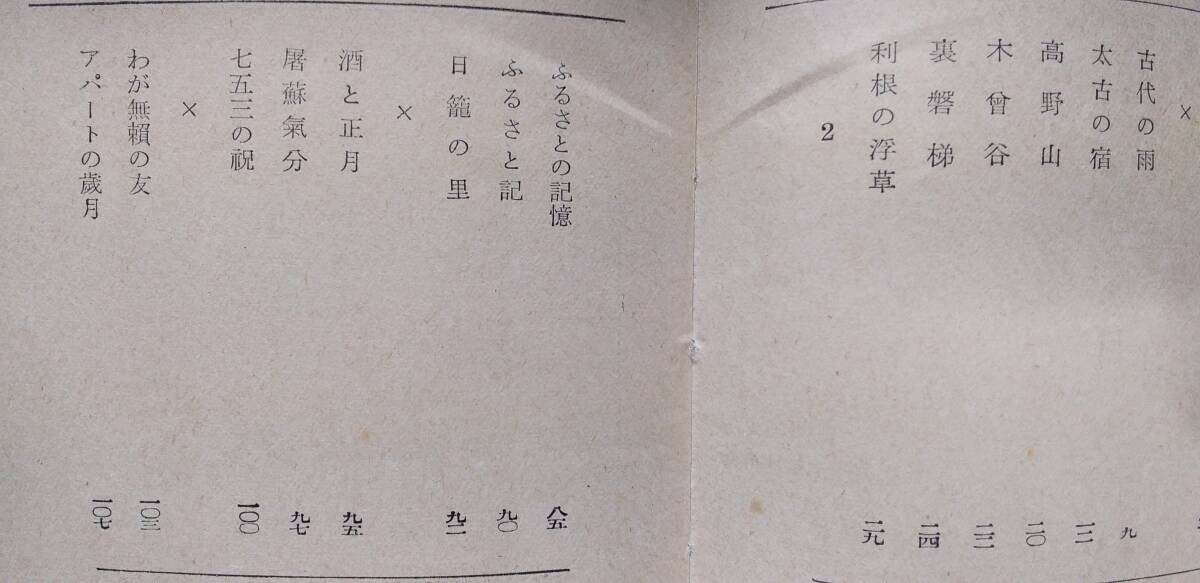 ×
古代の雨 九
太古の宿
高野山 二〇
木曾谷
裏磐梯 二四
利根の浮草 二九
2
ふるさとの記憶 八五
ふるさと記 九〇
日籠の里 九二
×
酒と正月 九五
屠蘇氣分 九七
七五三の祝 一〇〇
×
わが無賴の友 一〇三
アパートの歲月 一〇七